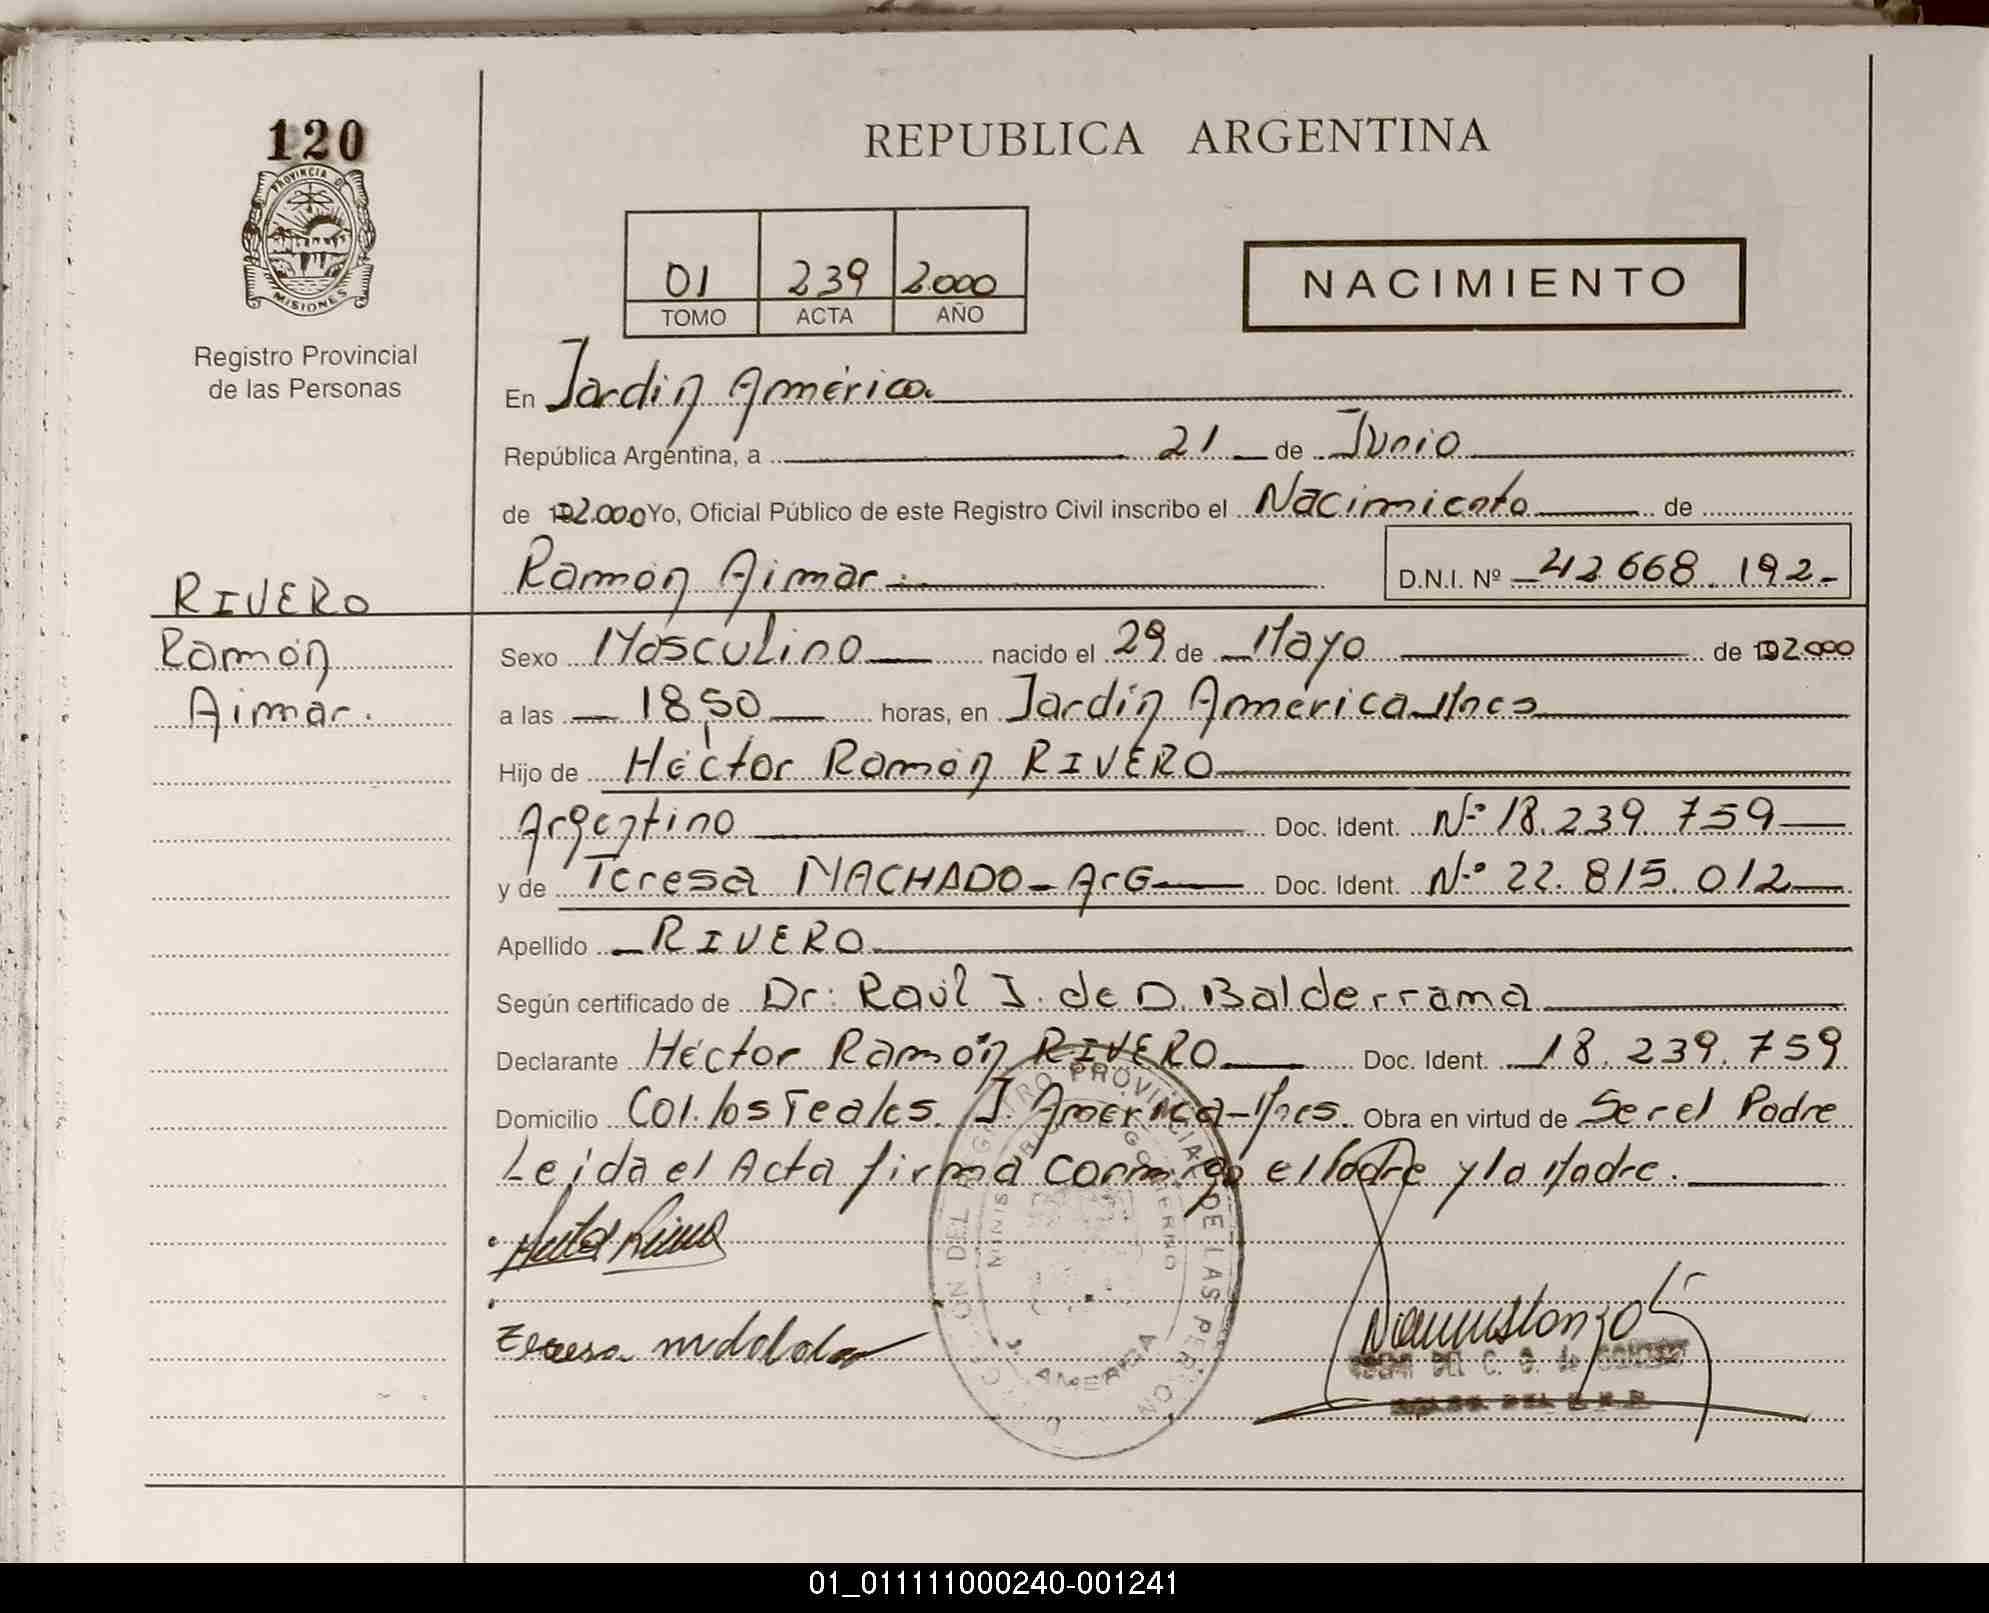 120
PROVINCIA DE
MISIONES
Registro Provincial
de las Personas
REPUBLICA ARGENTINA
01 239 2.000
TOMO ACTA AÑO
NACIMIENTO
En Jardin América
República Argentina, a 21 de Junio
de 2.000 Yo, Oficial Público de este Registro Civil inscribo el Nacimiento de
Ramón Aimar.- D.N.I. Nº 42 668.192-
RIVERO
Ramón
Aimar.
Sexo Masculino nacido el 29 de Mayo de 2.000
a las 18,50 horas, en Jardín América Mnes
Hijo de Héctor Ramón RIVERO
Argentino Doc. Ident. Nº 18.239.759
y de Teresa MACHADO - ArG Doc. Ident. Nº 22.815.012
Apellido RIVERO
Según certificado de Dr: Raúl J. de D. Balderrama
Declarante Héctor Ramón RIVERO Doc. Ident. 18.239.759
Domicilio Col. los Teales. J. América-Mnes. Obra en virtud de Ser el Padre
Leida el Acta firma conmigo el Padre y la Madre.
REGISTRO PROVINCIAL DE LAS PERSONAS
MINISTERIO GOBIERNO
J. AMERICA
01_011111000240-001241